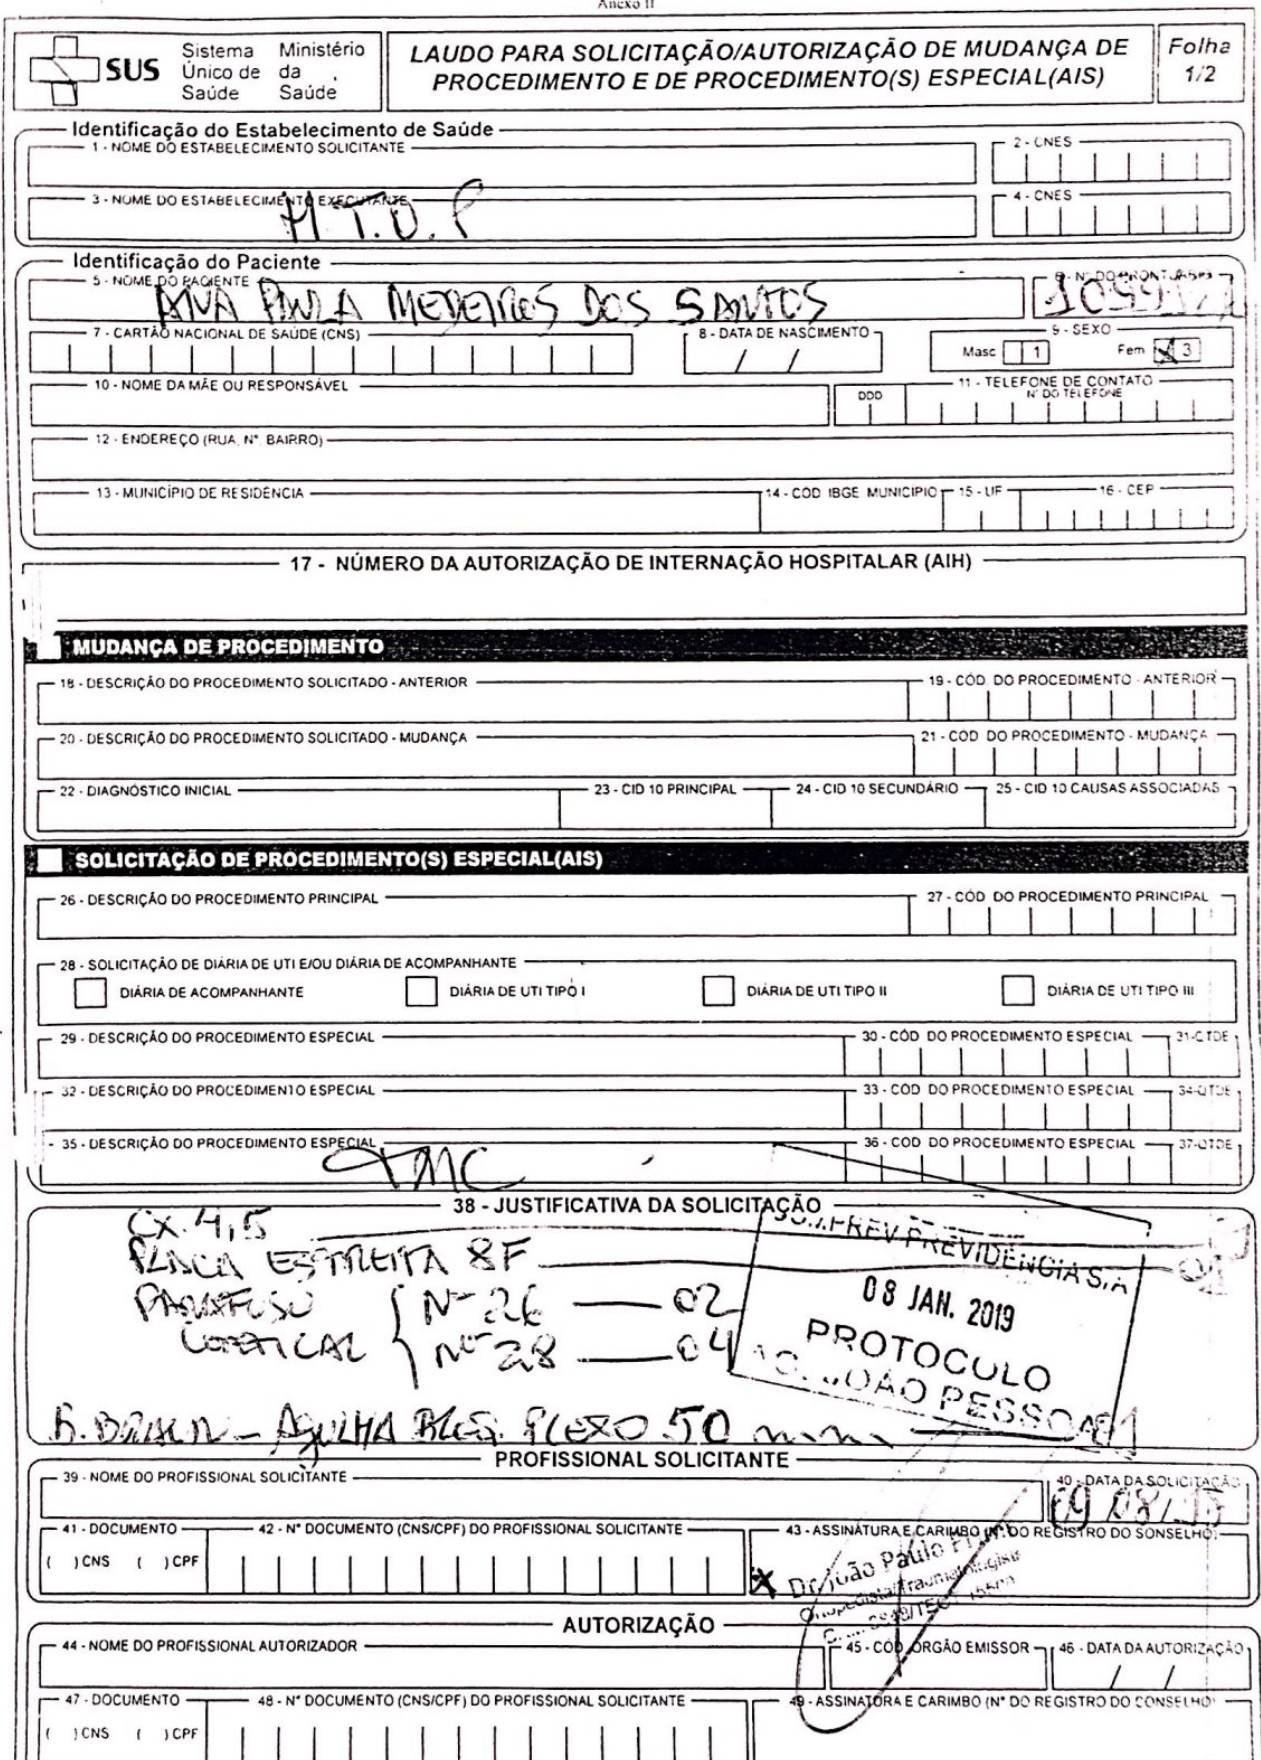 Anexo II
SUS Sistema Único de Saúde Ministério da Saúde
LAUDO PARA SOLICITAÇÃO/AUTORIZAÇÃO DE MUDANÇA DE
PROCEDIMENTO E DE PROCEDIMENTO(S) ESPECIAL(AIS)
Folha
1/2
Identificação do Estabelecimento de Saúde
1 - NOME DO ESTABELECIMENTO SOLICITANTE
2 - CNES
3 - NOME DO ESTABELECIMENTO EXECUTANTE
4 - CNES
Identificação do Paciente
5 - NOME DO PACIENTE
6 - Nº DO PRONTUÁRIO
ANA PAULA MEDEIROS DOS SANTOS
7 - CARTÃO NACIONAL DE SAÚDE (CNS)
8 - DATA DE NASCIMENTO
/ /
9 - SEXO
Masc 1
Fem X 3
10 - NOME DA MÃE OU RESPONSÁVEL
11 - TELEFONE DE CONTATO
DDD
Nº DO TELEFONE
12 - ENDEREÇO (RUA, Nº, BAIRRO)
13 - MUNICÍPIO DE RESIDÊNCIA
14 - CÓD IBGE MUNICIPIO
15 - UF
16 - CEP
17 - NÚMERO DA AUTORIZAÇÃO DE INTERNAÇÃO HOSPITALAR (AIH)
MUDANÇA DE PROCEDIMENTO
18 - DESCRIÇÃO DO PROCEDIMENTO SOLICITADO - ANTERIOR
19 - CÓD. DO PROCEDIMENTO - ANTERIOR
20 - DESCRIÇÃO DO PROCEDIMENTO SOLICITADO - MUDANÇA
21 - CÓD DO PROCEDIMENTO - MUDANÇA
22 - DIAGNÓSTICO INICIAL
23 - CID 10 PRINCIPAL
24 - CID 10 SECUNDÁRIO
25 - CID 10 CAUSAS ASSOCIADAS
SOLICITAÇÃO DE PROCEDIMENTO(S) ESPECIAL(AIS)
26 - DESCRIÇÃO DO PROCEDIMENTO PRINCIPAL
27 - CÓD DO PROCEDIMENTO PRINCIPAL
28 - SOLICITAÇÃO DE DIÁRIA DE UTI E/OU DIÁRIA DE ACOMPANHANTE
DIÁRIA DE ACOMPANHANTE
DIÁRIA DE UTI TIPO I
DIÁRIA DE UTI TIPO II
DIÁRIA DE UTI TIPO III
29 - DESCRIÇÃO DO PROCEDIMENTO ESPECIAL
30 - CÓD DO PROCEDIMENTO ESPECIAL
31-QTDE
32 - DESCRIÇÃO DO PROCEDIMENTO ESPECIAL
33 - CÓD DO PROCEDIMENTO ESPECIAL
34-QTDE
35 - DESCRIÇÃO DO PROCEDIMENTO ESPECIAL
36 - CÓD DO PROCEDIMENTO ESPECIAL
37-QTDE
TMC
38 - JUSTIFICATIVA DA SOLICITAÇÃO
CX. 4,5
PLACA ESTREITA 8F
PARAFUSO
CORTICAL
Nº 26 — 02
Nº 28 — 04
PREVIDÊNCIA S/A
08 JAN. 2019
PROTOCOLO
JOÃO PESSOA
B. BRAUN - AGULHA PLEXO 50 mm 01
PROFISSIONAL SOLICITANTE
39 - NOME DO PROFISSIONAL SOLICITANTE
40 - DATA DA SOLICITAÇÃO
41 - DOCUMENTO
( ) CNS ( ) CPF
42 - Nº DOCUMENTO (CNS/CPF) DO PROFISSIONAL SOLICITANTE
43 - ASSINATURA E CARIMBO (Nº DO REGISTRO DO SONSELHO)
Dr. João Paulo
Ortopedista/Traumatologista
AUTORIZAÇÃO
44 - NOME DO PROFISSIONAL AUTORIZADOR
45 - CÓD. ÓRGÃO EMISSOR
46 - DATA DA AUTORIZAÇÃO
/ /
47 - DOCUMENTO
( ) CNS ( ) CPF
48 - Nº DOCUMENTO (CNS/CPF) DO PROFISSIONAL SOLICITANTE
49 - ASSINATURA E CARIMBO (Nº DO REGISTRO DO CONSELHO)